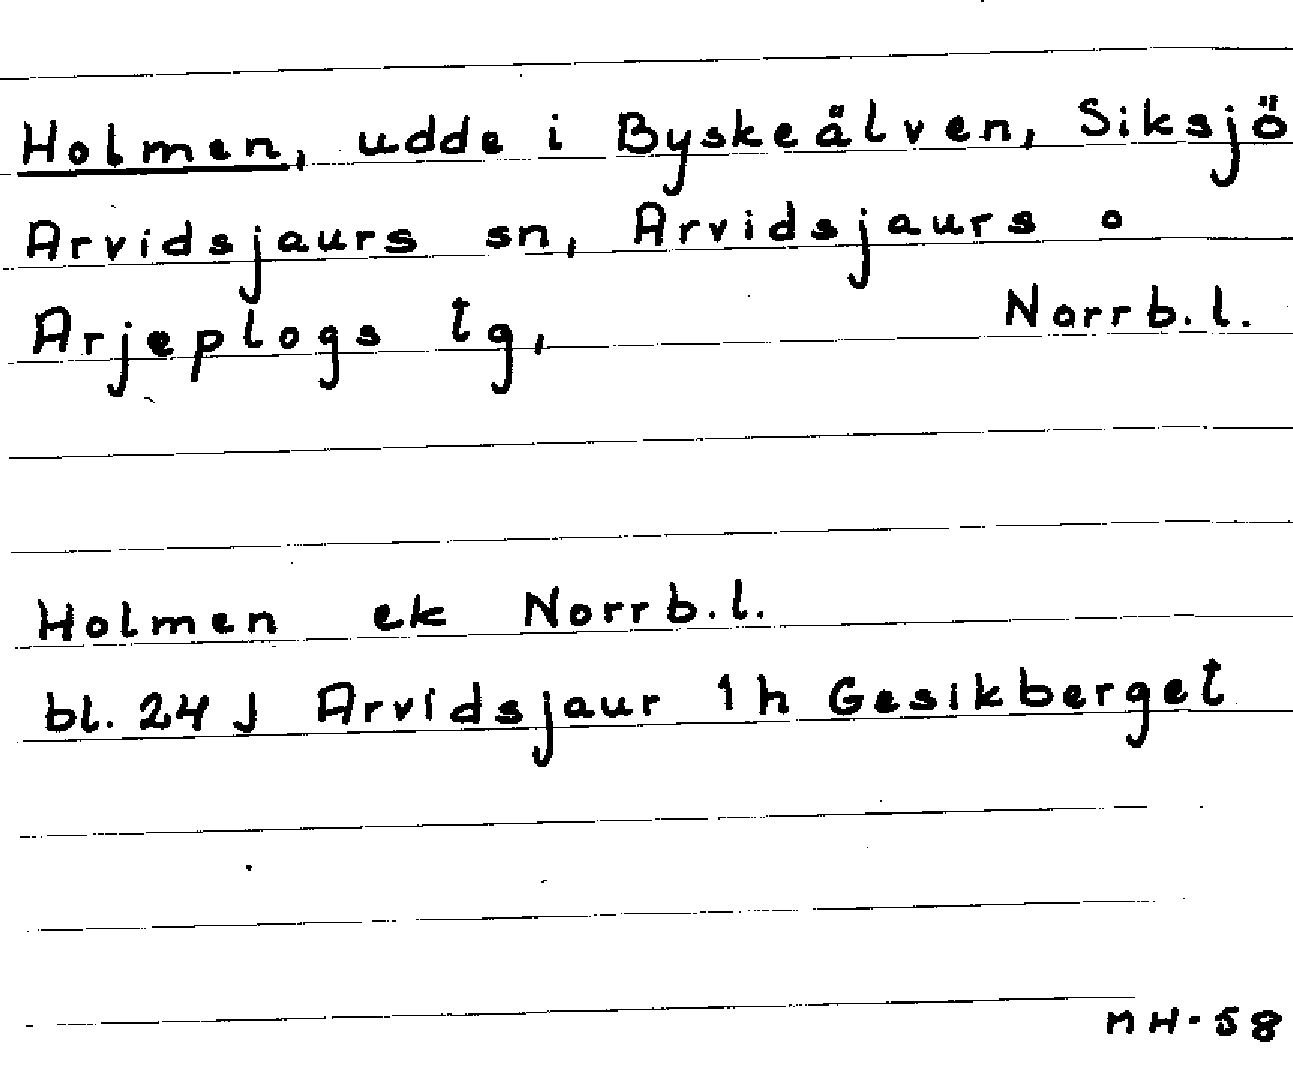 Holmen, udde i Byskeälven, Siksjö
Arvidsjaurs sn, Arvidsjaurs o
Arjeplogs tg, Norrb.l.
Holmen ek Norrb.l.
bl. 24 J Arvidsjaur 1h Gesikberget
MH-58